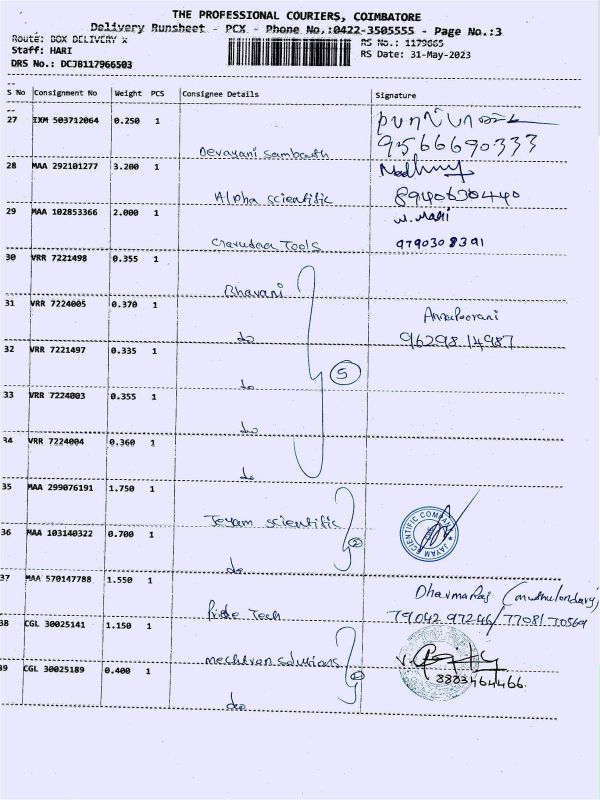 THE PROFESSIONAL COURIERS, COIMBATORE
Delivery Runsheet - PCX - Phone No.:0422-3505555 - Page No.:3
Route: BOX DELIVERY X
RS No.: 1179665
Staff: HARI
RS Date: 31-May-2023
DRS No.: DCJB117966503
S No Consignment No Weight PCS Consignee Details Signature
27 IXM 503712064 0.250 1
9566690333
Devayani Sambath
28 MAA 292101277 3.200 1
Alpha scientific 8940630440
29 MAA 102853366 2.000 1 M. Mani
Tools 9790308391
30 VRR 7221498 0.355 1
Bhavani
31 VRR 7224005 0.370 1 Annapoorani
do 9629814987
32 VRR 7221497 0.335 1
do 5
33 VRR 7224003 0.355 1
do
34 VRR 7224004 0.360 1
do
35 MAA 299076191 1.750 1
Jeyam scientific
JAYAM SCIENTIFIC COMPANY
36 MAA 103140322 0.700 1 2
do
37 MAA 570147788 1.550 1 Dharmaraj
Pride Tech 79042 97246/7708170569
38 CGL 30025141 1.150 1
Mechtran solutions
39 CGL 30025189 0.400 1 2 8883464466
do